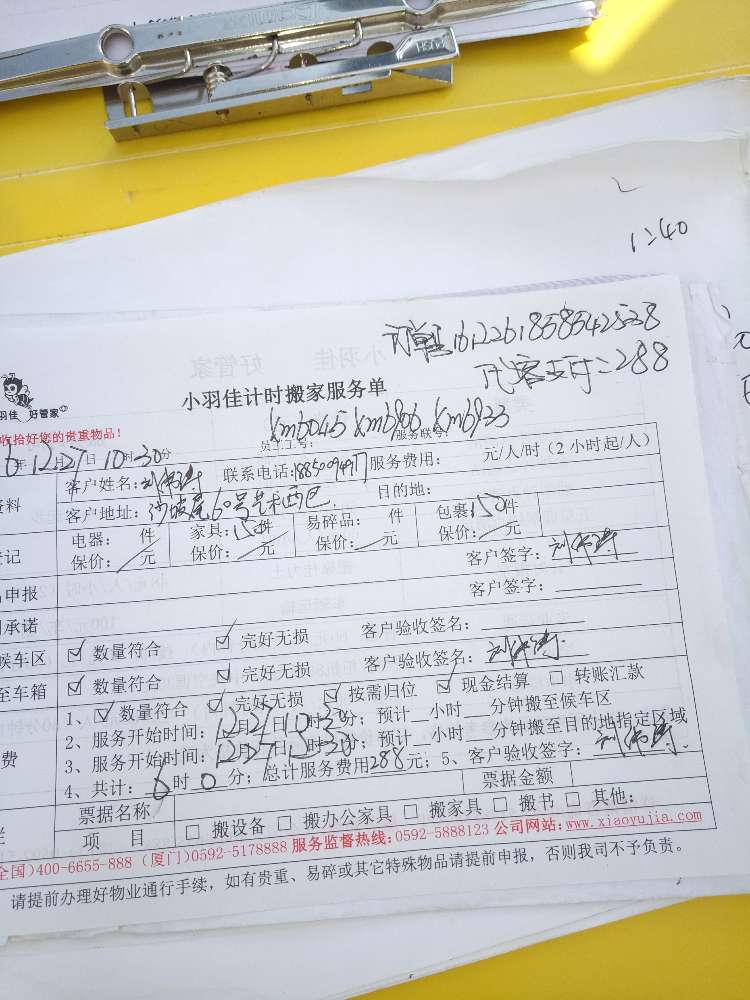 PUSH
1:40
订单号1612261858542528
代客支付:288
羽佳 好管家
小羽佳计时搬家服务单
收拾好您的贵重物品!
xm6045 xm6906 xm6933
6年12月27日10时30分 员工工号: 服务联号:
资料 客户姓名: 联系电话: 服务费用: 元/人/时(2小时起/人)
客户地址:沙坡尾60号艺术西区 目的地:
登记 电器: 件 家具:150件 易碎品: 件 包裹150件
保价: 元 保价: 元 保价: 元 保价: 元
申报 客户签字:
承诺 客户签字:
候车区 ☑ 数量符合 ☑ 完好无损 客户验收签名:
至车箱 ☑ 数量符合 ☑ 完好无损 客户验收签名:
1、☑ 数量符合 ☑ 完好无损 ☑ 按需归位 ☑ 现金结算 □ 转账汇款
2、服务开始时间:12月27日10时30分;预计 小时 分钟搬至候车区
费 3、服务开始时间:12月27日13时30分;预计 小时 分钟搬至目的地指定区域
4、共计:6时0分;总计服务费用288元;5、客户验收签字:
票据名称 票据金额
项 目 □ 搬设备 □ 搬办公家具 □ 搬家具 □ 搬书 □ 其他:
全国)400-6655-888 (厦门)0592-5178888 服务监督热线:0592-5888123 公司网站:www.xiaoyujia.com
请提前办理好物业通行手续,如有贵重、易碎或其它特殊物品请提前申报,否则我司不予负责。